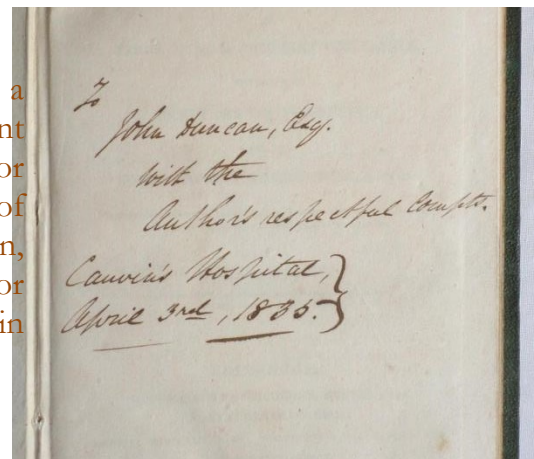 a
nt
or
of
n,
or
in
To
John Duncan, Esq.
with the
Author's respectful Compts.
Cauvin's Hospital,
April 3rd, 1835.